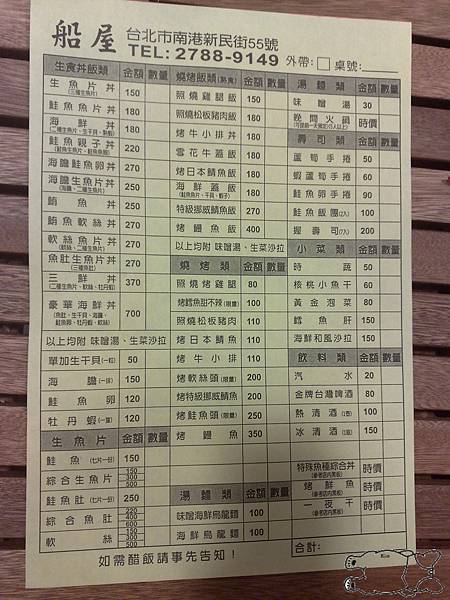 船屋
台北市南港新民街55號
TEL: 2788-9149 外帶:□ 桌號:
生食丼飯類 金額 數量
生魚片丼 150
(三種生魚片)
鮭魚魚片丼 170
海鮮丼 180
(二種生魚片、生干貝、熟蝦)
鮭魚親子丼 220
海膽鮭魚卵丼 270
海膽生魚片丼 250
(海膽、二種生魚片)
鮪魚丼 250
鮪魚軟絲丼 270
軟絲魚片丼 220
(軟絲、二種生魚片)
魚肚生魚片丼 270
(三種魚肚)
三鮮丼 370
(二種生魚片、軟絲、牡丹蝦)
豪華海鮮丼 700
(魚肚、生干貝、海膽、
鮭魚卵、牡丹蝦、軟絲)
以上均附 味噌湯、生菜沙拉
單加生干貝(一粒) 50
海膽(一排) 150
鮭魚卵 120
牡丹蝦(一隻) 120
生魚片 金額 數量
鮭魚(七片一份) 150
綜合生魚片 150
300
500
鮭魚肚(七片一份) 250
綜合魚肚 220
400
600
軟絲 150
300
500
燒烤飯類(熟食) 金額 數量
照燒雞腿飯 150
照燒松板豬肉飯 180
烤牛小排丼 180
雪花牛蓋飯 180
烤日本鯖魚飯 180
海鮮蓋飯 180
(鮭魚片、干貝、蝦子)
特級挪威鯖魚飯 270
烤鰻魚飯 400
以上均附 味噌湯、生菜沙拉
燒烤類 金額 數量
照燒烤雞腿 80
烤鱈魚甜不辣(限量) 100
照燒松板豬肉 110
烤日本鯖魚 110
烤牛小排 110
烤軟絲頭(限量) 200
烤特級挪威鯖魚 200
烤鮭魚頭(限量) 250
烤鰻魚 350
湯麵類 金額 數量
味噌海鮮烏龍麵 100
海鮮烏龍麵 100
湯麵類 金額 數量
味噌湯 30
晚間火鍋 時價
壽司類 金額 數量
蘆筍手捲 50
蝦蘆筍手捲 60
鮭魚卵手捲 90
鮭魚飯團(2入) 100
握壽司(7入) 200
小菜類 金額 數量
時蔬 50
核桃小魚干 60
黃金泡菜 80
鱈魚肝 150
海鮮和風沙拉 150
飲料類 金額 數量
汽水 20
金牌台灣啤酒 80
熱清酒(1壺) 100
冰清酒(1瓶) 150
特殊魚種綜合丼 時價
(參考店內黑板)
烤鮮魚 時價
(參考店內黑板)
一夜干 時價
(參考店內黑板)
合計:
如需醋飯請事先告知!